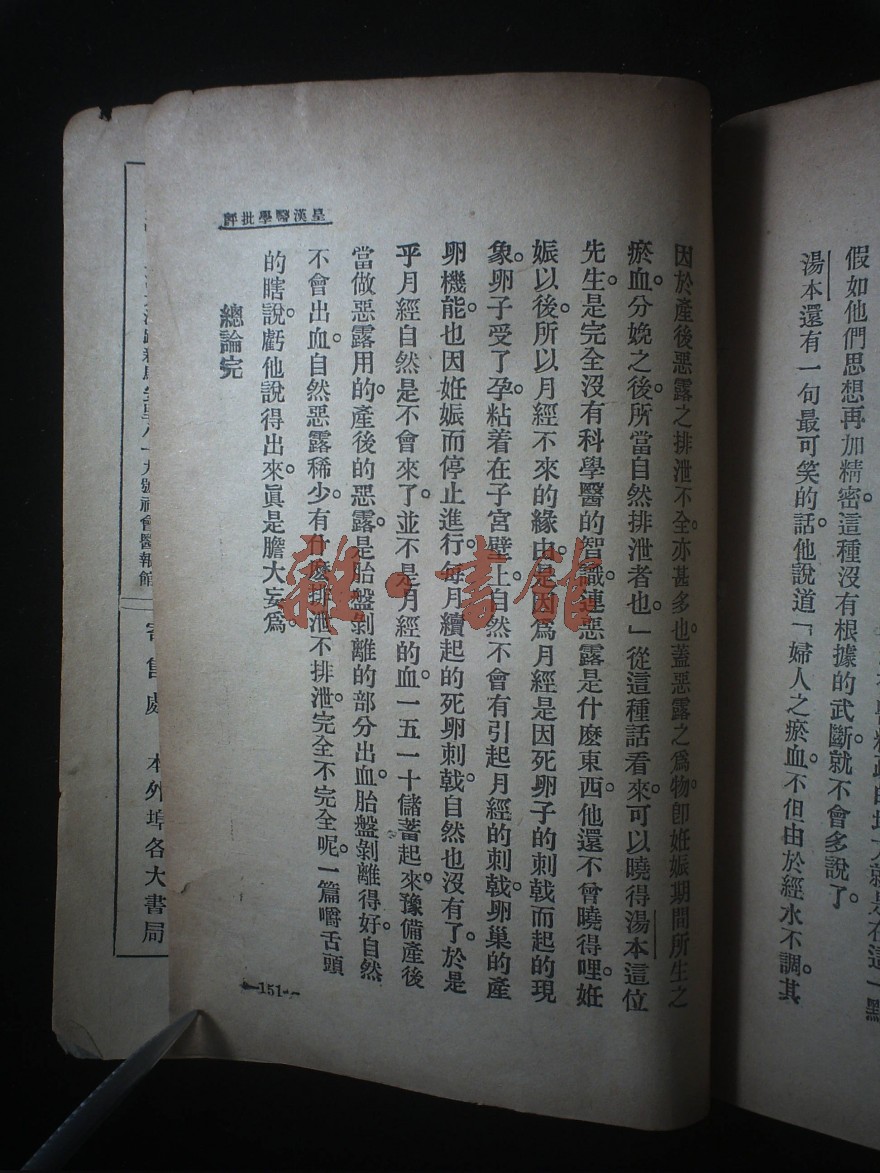 假如他們思想再加精密。這種沒有根據的武斷。就不會多說了。
湯本還有一句最可笑的話。他說道「婦人之瘀血。不但由於經水不調。其
皇漢醫學批評
因於產後惡露之排泄不全。亦甚多也。蓋惡露之爲物。卽姙娠期間所生之
瘀血。分娩之後。所當自然排泄者也。」從這種話看來。可以曉得湯本這位
先生。是完全沒有科學醫的智識。連惡露是什麼東西。他還不曾曉得哩。姙
娠以後。所以月經不來的緣由。是因爲月經是因死卵子的刺戟而起的現
象。卵子受了孕。粘着在子宮壁上。自然不會有引起月經的刺戟。卵巢的產
卵機能。也因姙娠而停止進行。每月續起的死卵刺戟。自然也沒有了。於是
乎月經自然是不會來了。並不是月經的血。一五一十儲蓄起來。豫備產後
當做惡露用的。產後的惡露。是胎盤剝離的部分出血。胎盤剝離得好。自然
不會出血。自然惡露稀少。有什麼排泄不排泄。完全不完全呢。一篇嚼舌頭
的瞎說。虧他說得出來。眞是膽大妄爲。
總論完
151
八一九號社會醫報館
寄售處 本外埠各大書局
雜·書館